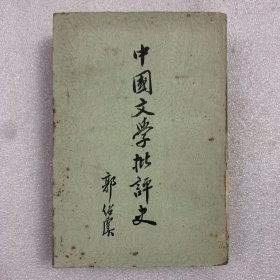 中國文学批評史
郭紹虞